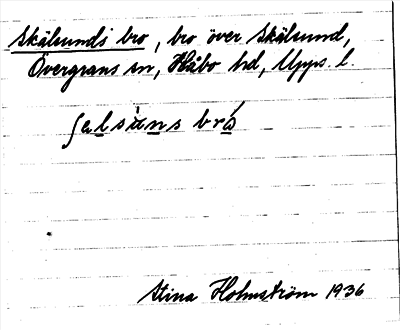 Skälsunds bro, bro över Skälsund,
Övergrans sn, Håbo hd, Upps. l.
ʃælsùns bró
Stina Holmström 1936